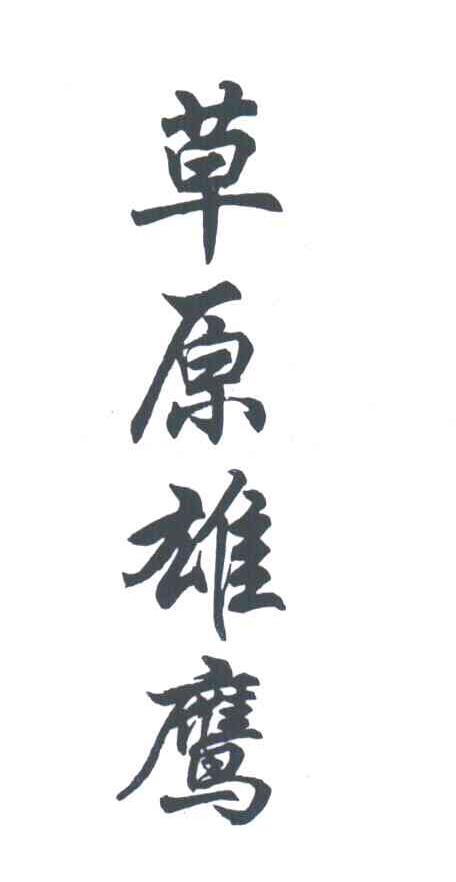 草原雄鹰